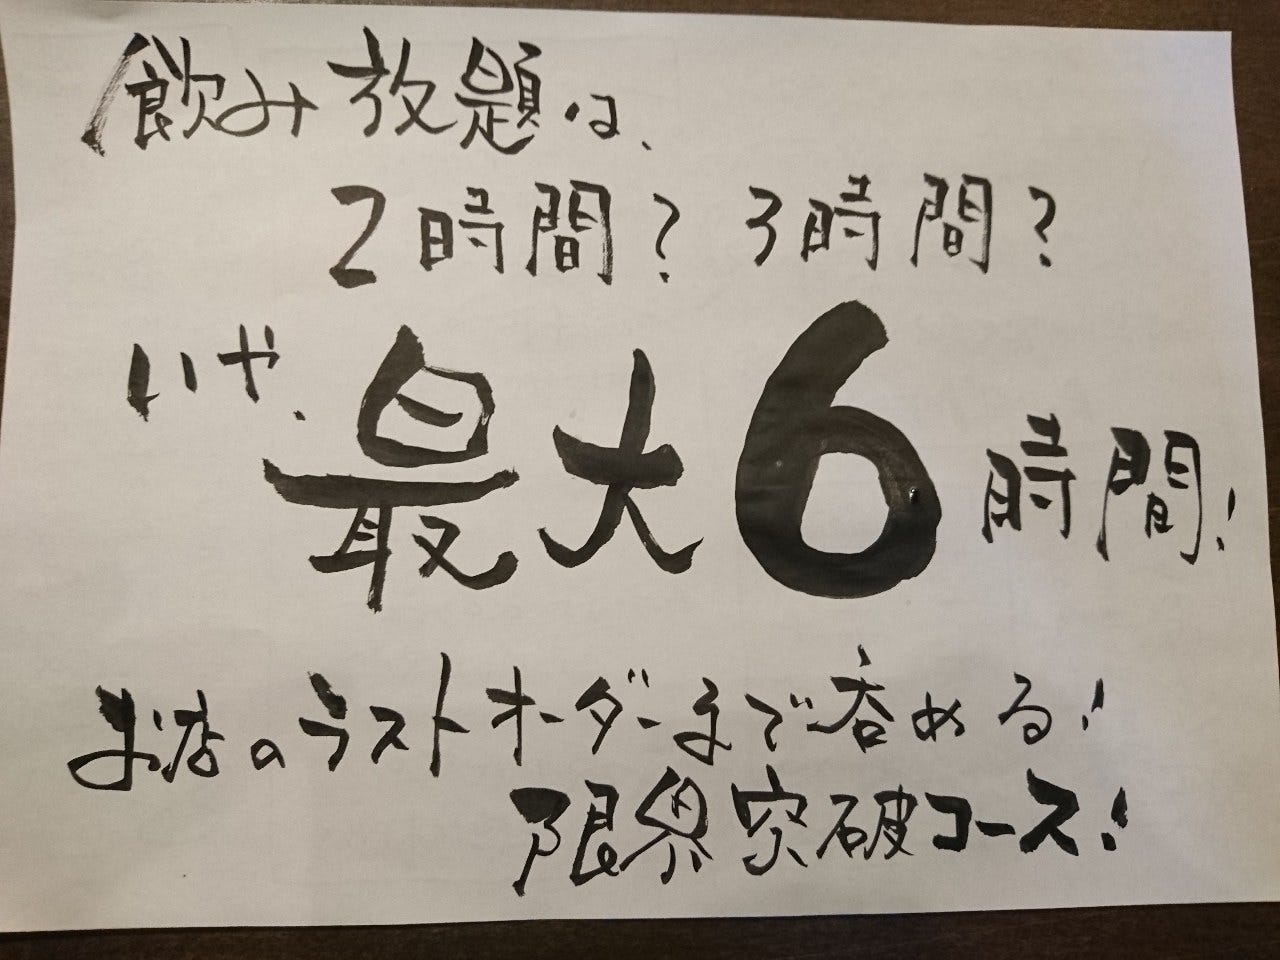 飲み放題は、
2時間？3時間？
いや、最大6時間！
お店のラストオーダーまで呑める！
限界突破コース！